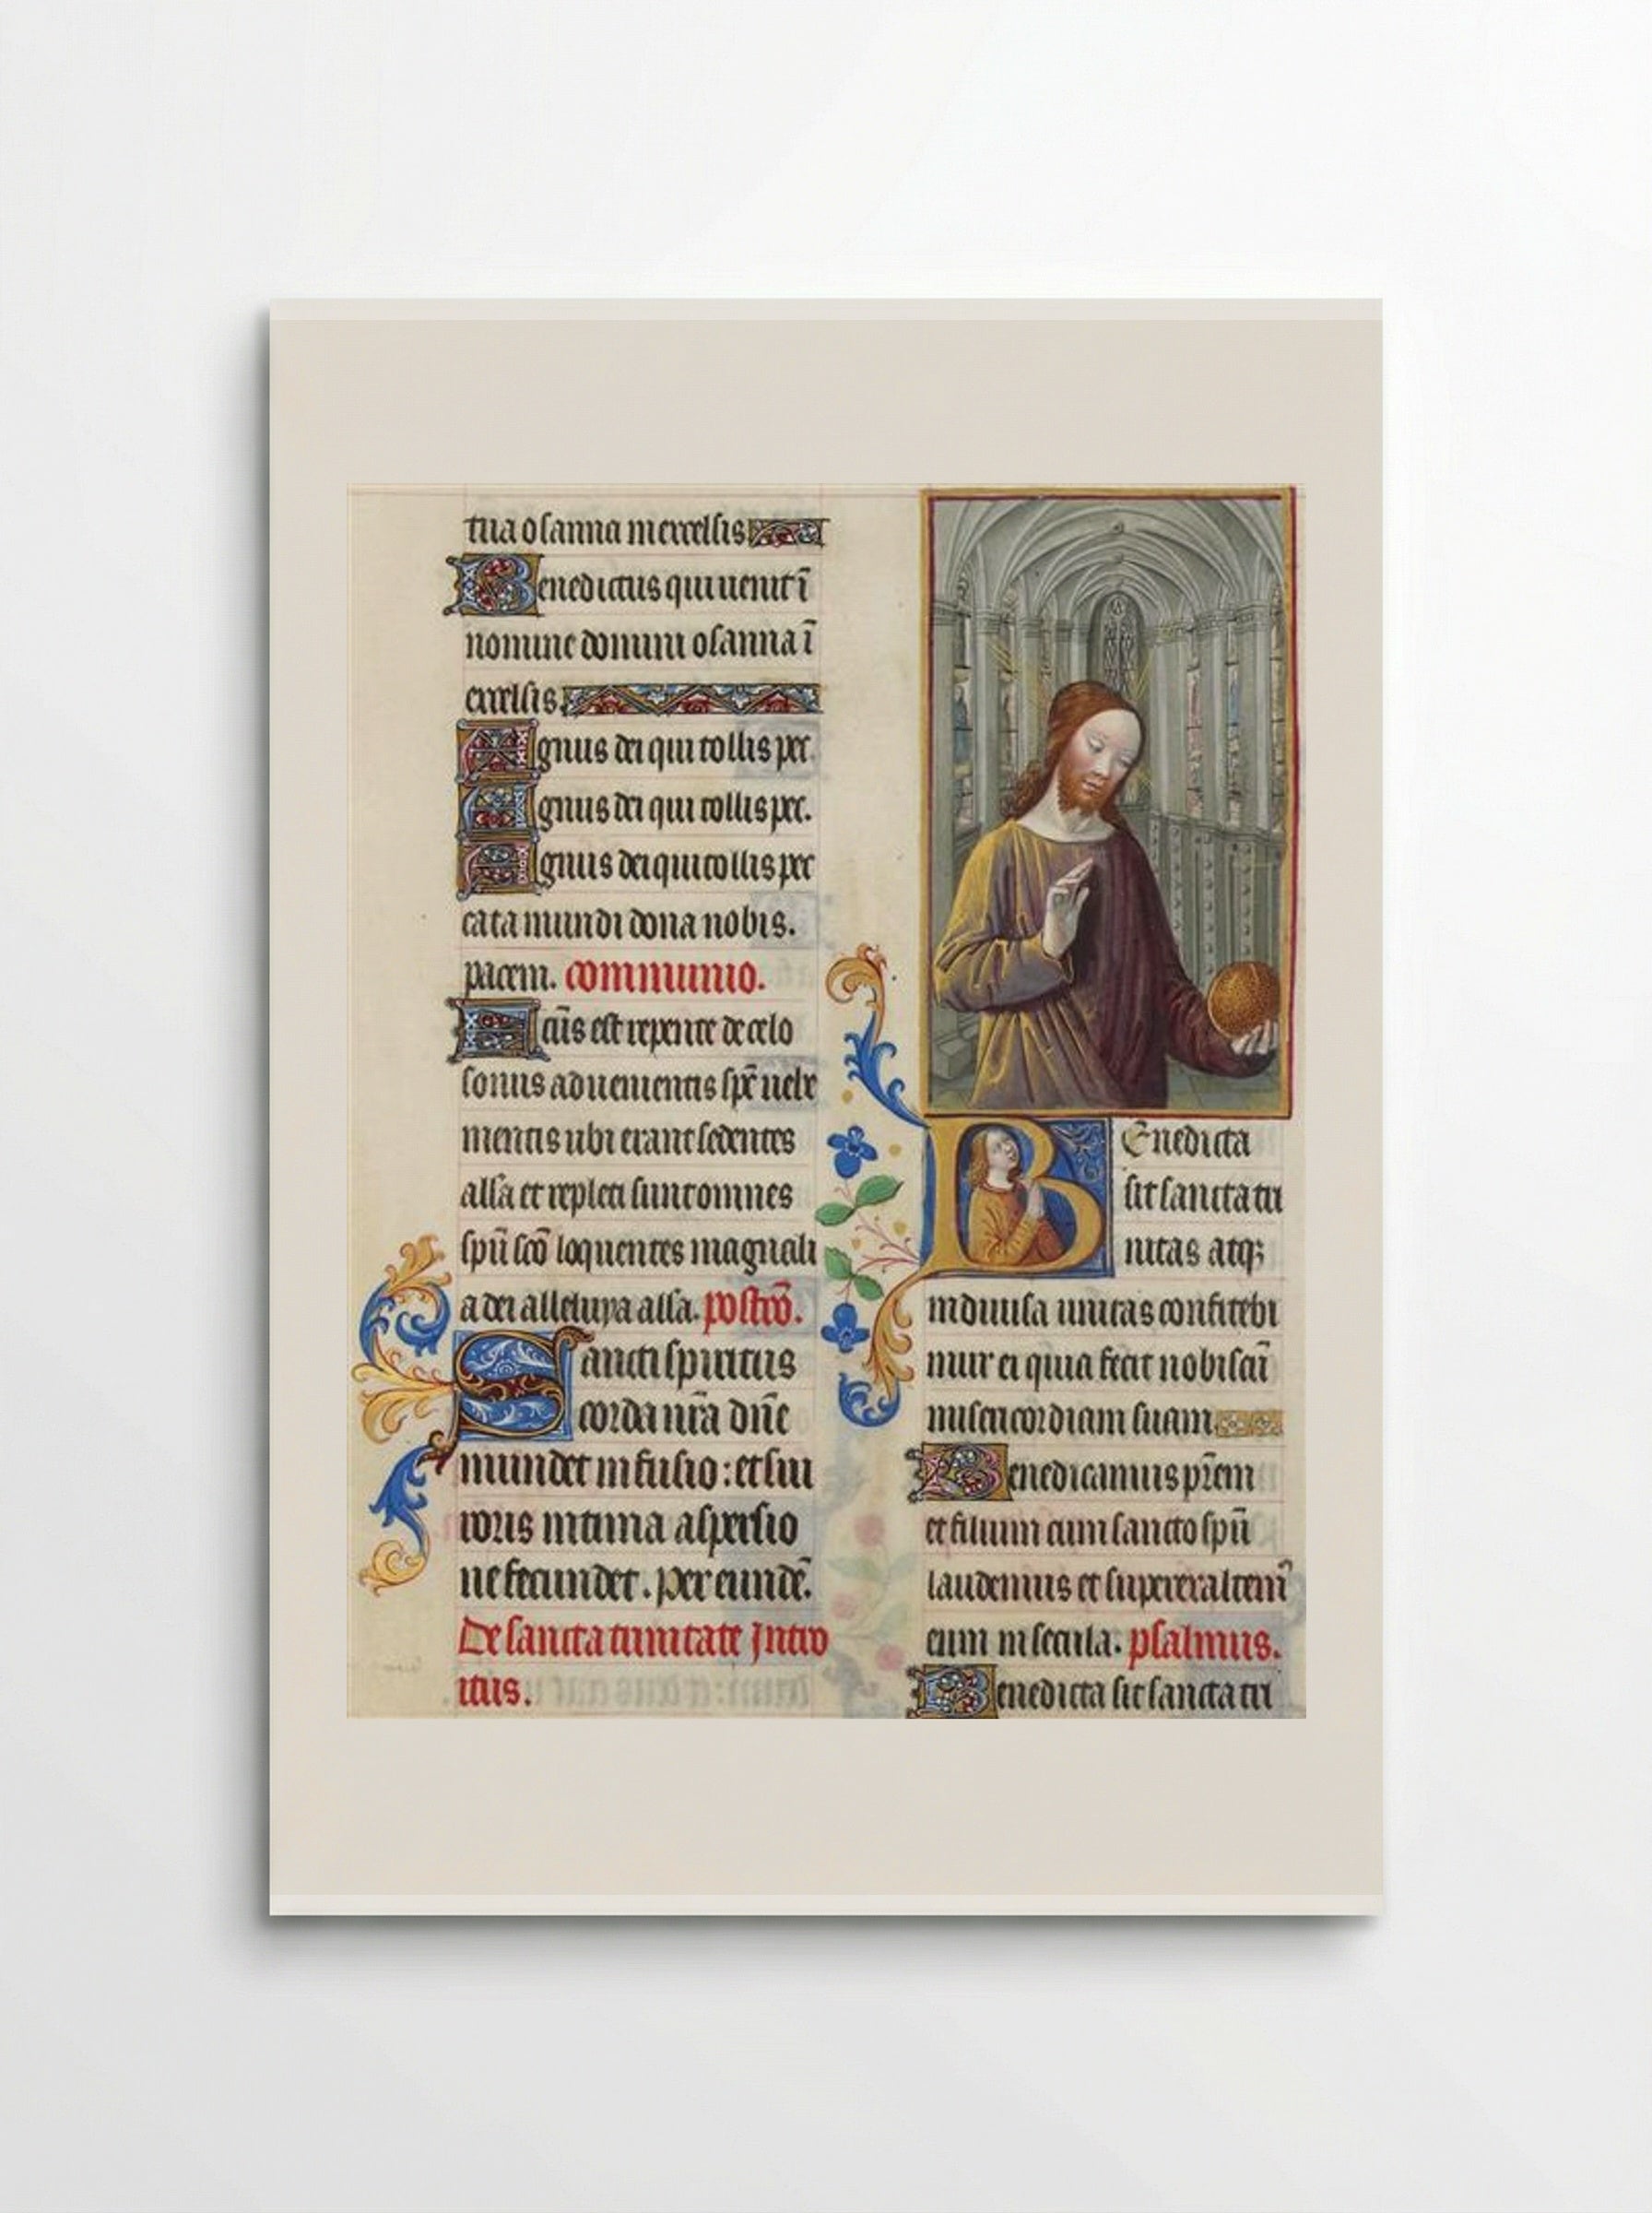 tua osanna in excelsis
Benedictus qui uenit ī
nomine domini osanna ī
excelsis.
Agnus dei qui tollis pec.
Agnus dei qui tollis pec.
Agnus dei qui tollis pec
cata mundi dona nobis.
pacem. communio.
Factūs est repente de celo
sonus aduenientis spūs uehe
mentis ubi erant sedentes
alla et repleti sunt omnes
spū scō loquentes magnali
a dei alleluya alla. postcō.
Sancti spiritus
corda nr̄a dn̄e
mundet infusio: et sui
roris intima aspersio
ne fecundet. per eundē.
De sancta trinitate Intro
itus.
Benedicta
sit sancta tri
nitas atqꝫ
indiuisa unitas confitebi
mur ei quia fecit nobiscū
misericordiam suam
Benedicamus pr̄em
et filium cum sancto spū
laudemus et superexaltem̄
eum in secula. psalmus.
Benedicta sit sancta tri